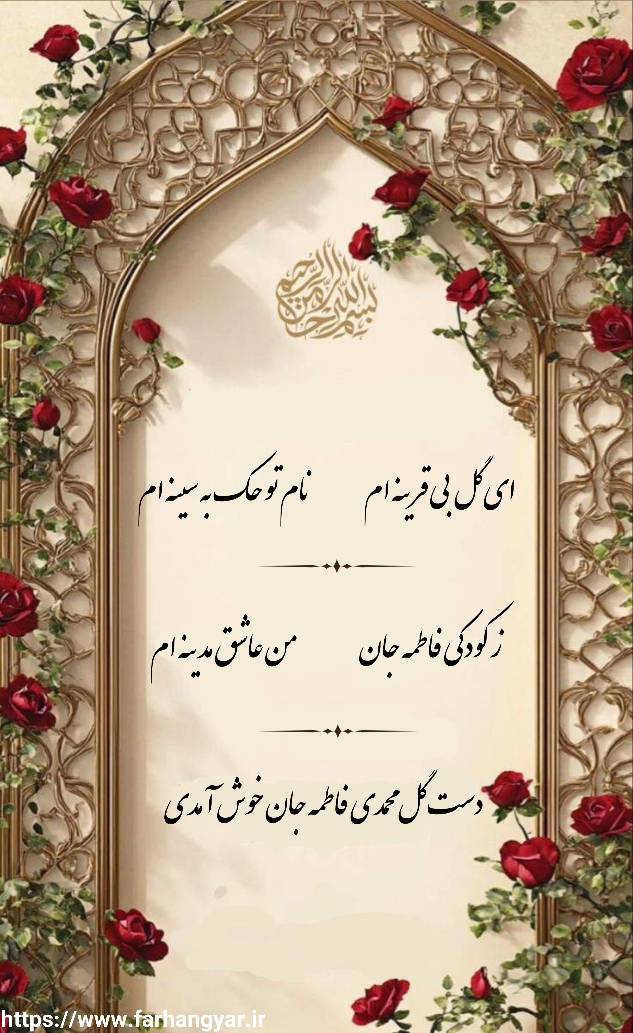 بسم الله الرحمن الرحیم
ای گل بی قرینه ام نام تو حک به سینه ام
ز کودکی فاطمه جان من عاشق مدینه ام
دست گل محمدی فاطمه جان خوش آمدی
https://www.farhangyar.ir